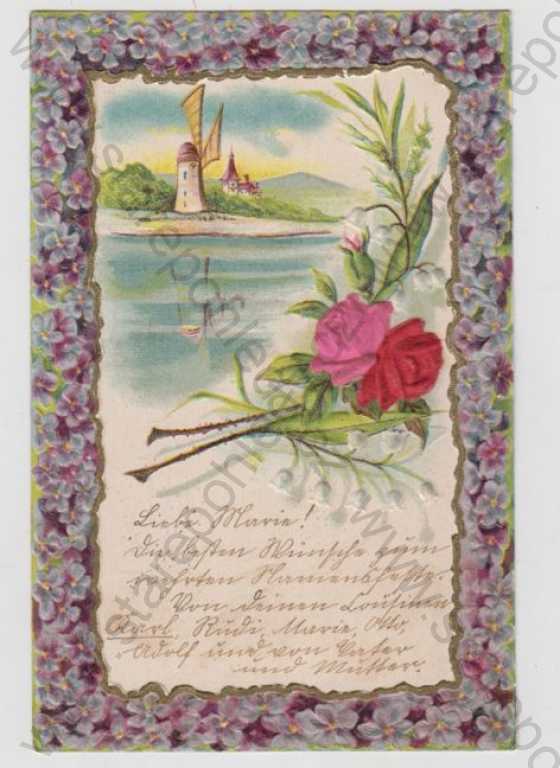 Liebe Marie!
Die besten Wünsche zum
werten Namensfeste.
Von Deinen Cousinen
Karl, Rudi, Marie, Otto,
Adolf und von Vater
und Mutter.
www.starepohledy